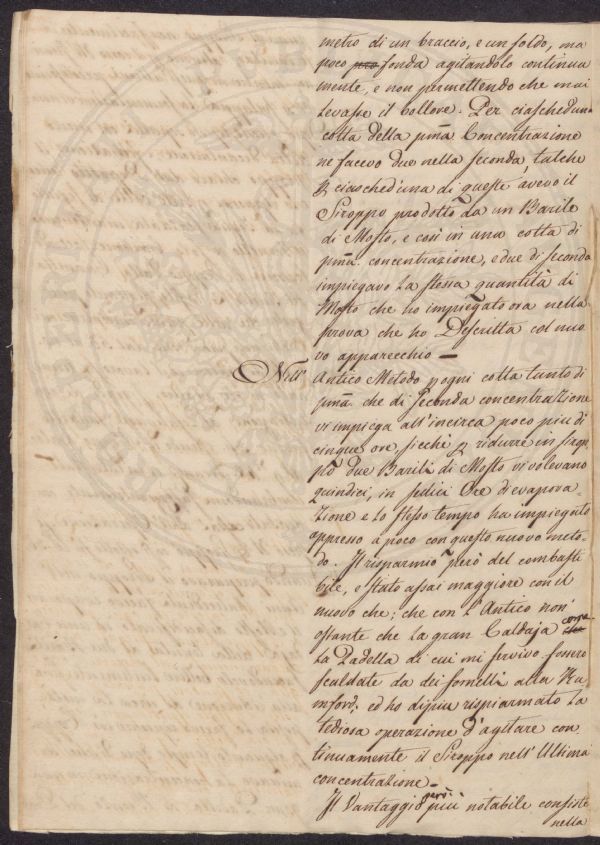 metro di un braccio, e un soldo, ma
poco pro fonda agitandolo continua
mente, e non permettendo che mai
Levasse il bollore. Per ciaschedun
cotta della pma Concentrazione
ne facevo due nella seconda, talche
p ciasched'una di queste avevo il
Siroppo prodotto da un Barile
di Mosto, e così in una cotta di
pma. concentrazione, e due di seconda
impiegavo la stessa quantità di
Mosto che ho impiegato ora nella
prova che ho Descritta col nuo
vo apparecchio —
Nell' Antico Metodo p ogni cotta tanto di
pma. che di seconda concentrazione
vi impiega all'incirca poco piu di
cinque ore, sicchè p ridurre in sirop
po due Barili di Mosto vi volevano
quindici, in sedici Ore di evapora-
zione e lo stesso tempo ha impiegato
appresso a poco con questo nuovo meto-
do. Il risparmio però del combusti
bile, e stato assai maggiore con il
nuovo che; che con l'Antico non
ostante che la gran Caldaja come
la Padella di cui mi servivo fossero
scaldate da dei fornelli alla Ru
mford; ed ho dipiu risparmiato la
tediosa operazione d'agitare con
tinuamente il Siroppo nell'Ultima
concentrazione.
Il Vantaggio però più notabile consiste
nella